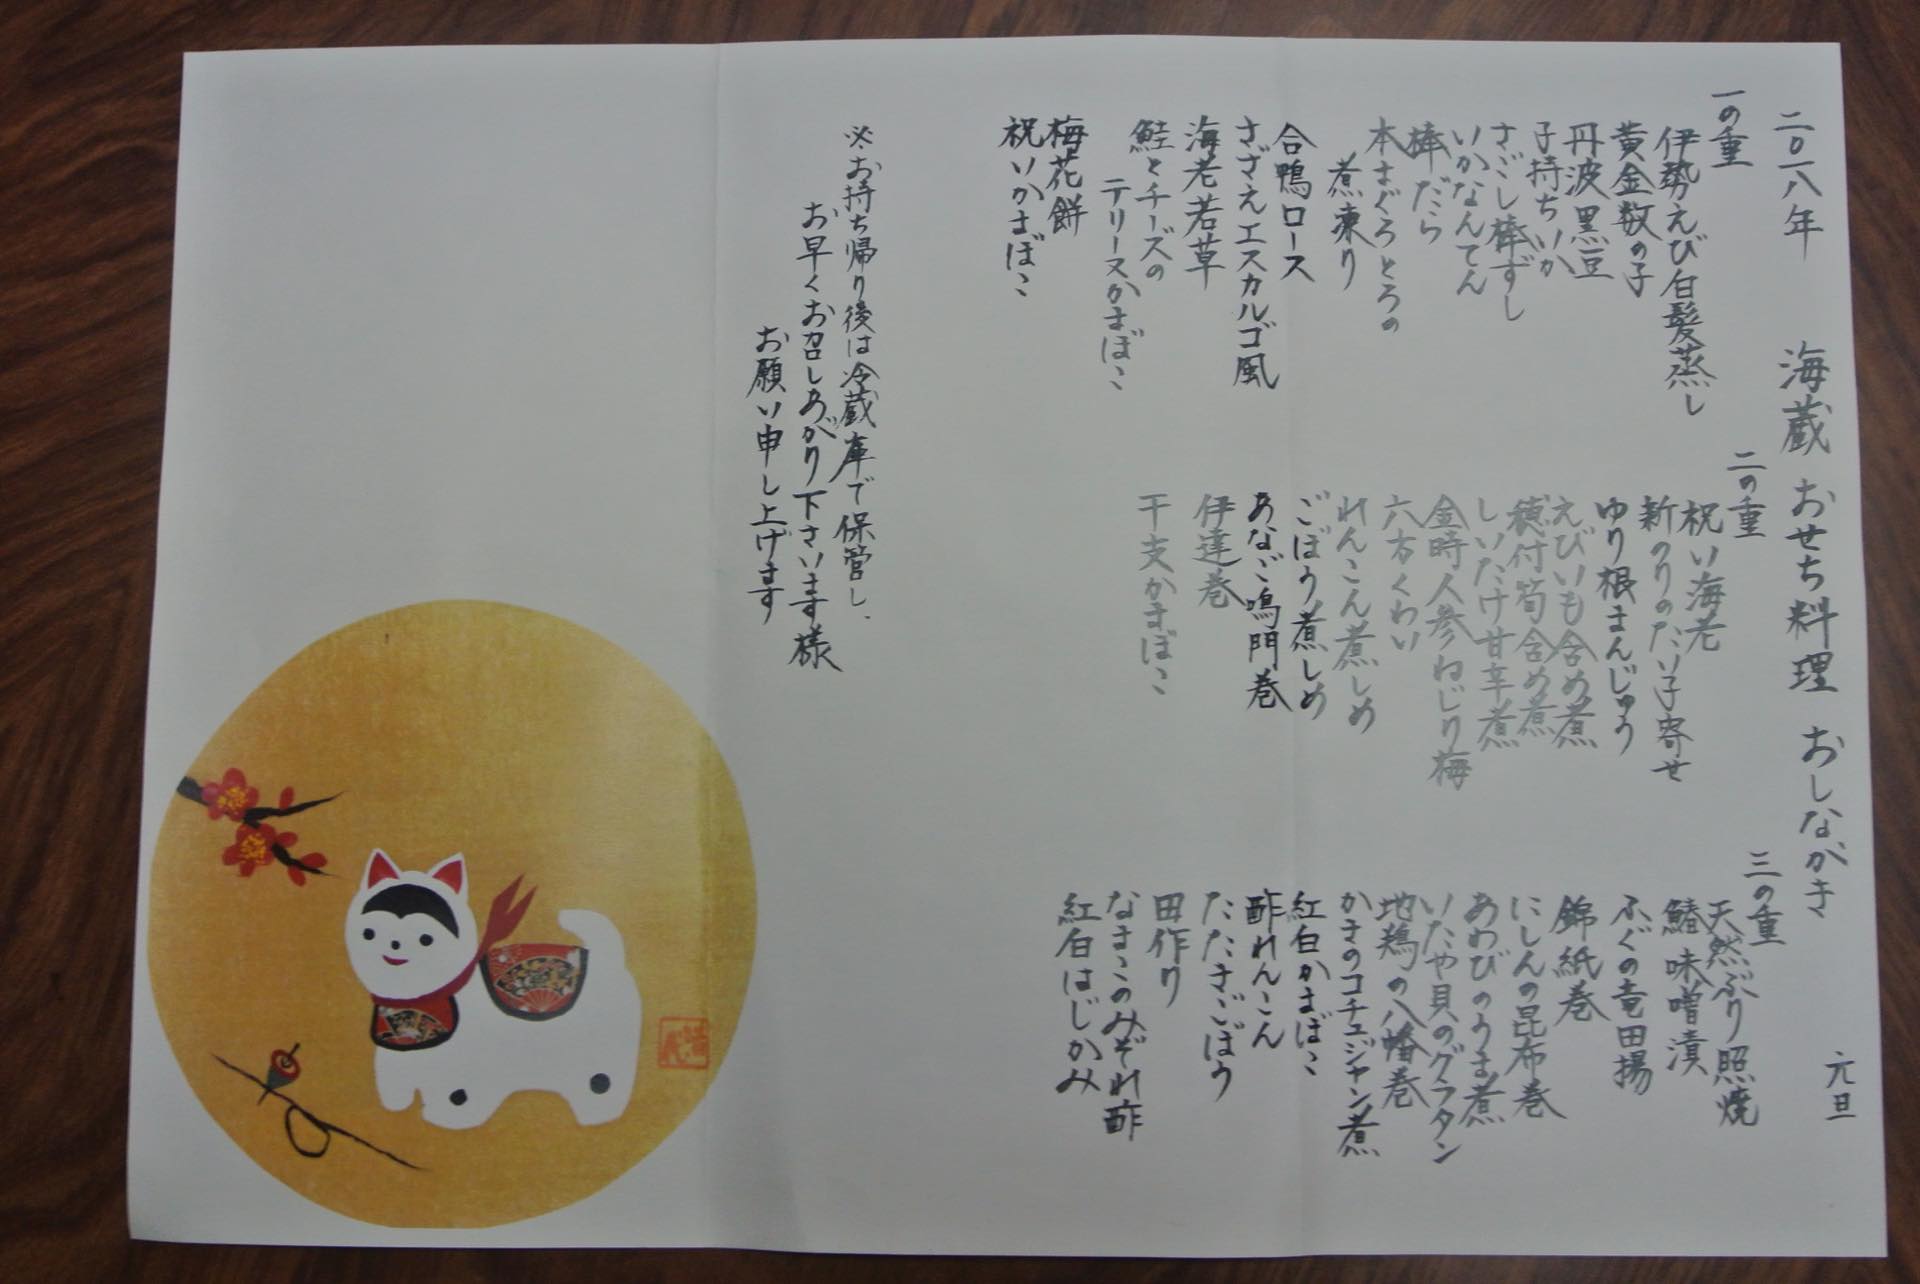 二〇一八年 海蔵 おせち料理 おしながき 元旦
一の重
伊勢えび白髪蒸し
黄金数の子
丹波黒豆
子持ちいか
さごし棒ずし
いかなんてん
棒だら
本まぐろとろの
煮凍り
合鴨ロース
さざえエスカルゴ風
海老若草
鮭とチーズの
テリーヌかまぼこ
梅花餅
祝いかまぼこ
二の重
祝い海老
新のりのたい子寄せ
ゆり根まんじゅう
えびいも含め煮
穂付筍含め煮
しいたけ甘辛煮
金時人参ねじり梅
六方くわい
れんこん煮しめ
ごぼう煮しめ
あなご鳴門巻
伊達巻
干支かまぼこ
三の重
天然ぶり照焼
鰆味噌漬
ふぐの竜田揚
錦紙巻
にしんの昆布巻
あわびのうま煮
いたや貝のグラタン
地鶏の八幡巻
かきのコチュジャン煮
紅白かまぼこ
酢れんこん
たたきごぼう
田作り
なまこのみぞれ酢
紅白はじかみ
※お持ち帰り後は冷蔵庫で保管し、
お早くお召しあがり下さいます様
お願い申し上げます